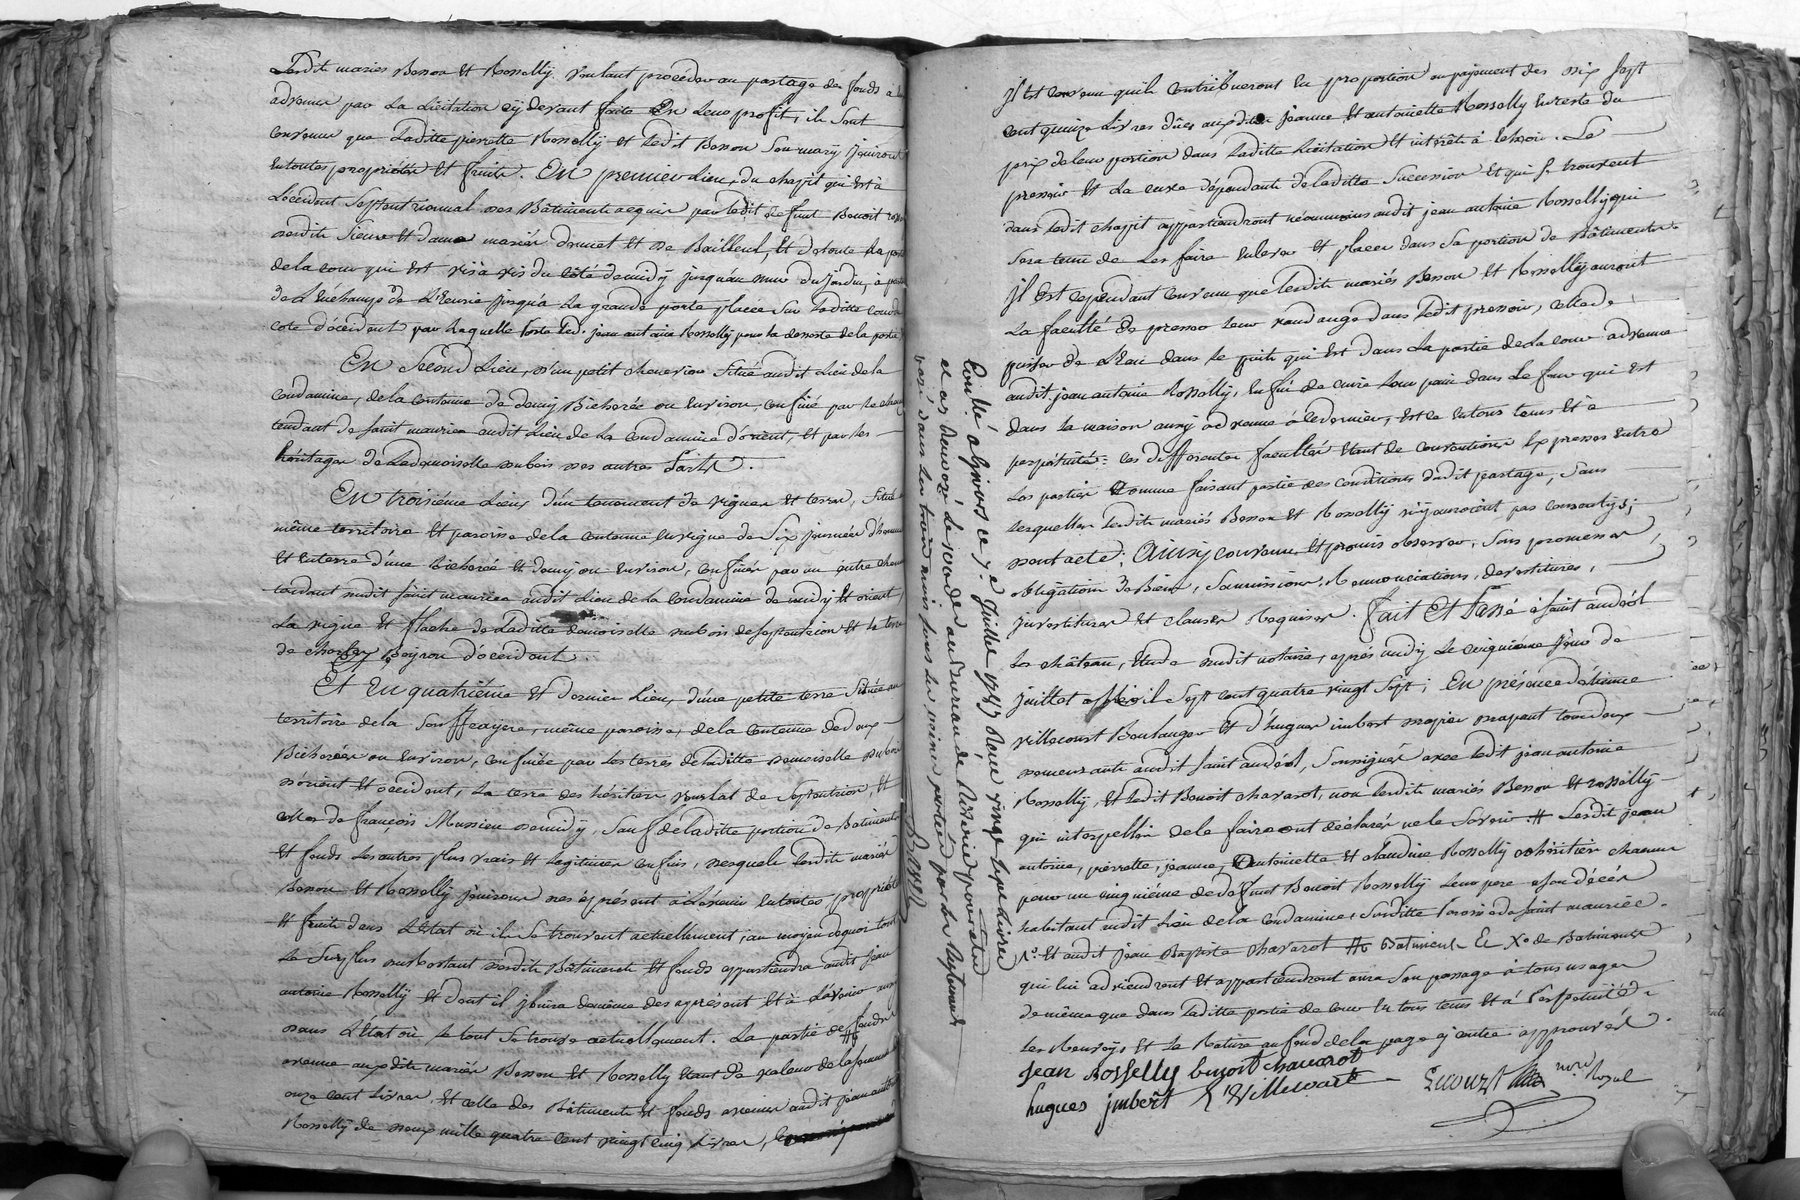 Lesdits mariés Besson et Rosselly voulant procéder au partage des fonds a
advenus par la licitation cÿ devant faite en leur profit, ils sont
convenus que laditte pierrette Rosselly et ledit Besson son mary jouiront
en toutes propriétés et fruits. En premier lieu, du chapit qui est à
l'occident septentrional des Bâtiments acquis par ledit defunt Benoit
desdits sieur et dame mariés drevet et de Bailleul, et de toute la partie
de la cour qui est vis à vis du côté de midÿ jusqu'au mur du jardin, à
de l'Ecurie jusqu'à la grande porte placée sur laditte cour
coté d'occident par laquelle led. jean antoine Rosselly pour la desserte de la partie
En second Lieu, d'un petit chenevier situé audit Lieu de la
Condamine, de la contenue de demy Bicherée ou environ, confiné par le chemin
tendant de saint maurice audit Lieu de la condamine d'orient, et par les
héritages de Lademoiselle dubois des autres parts.
En troisiéme Lieu, d'un tenement de vignes et terre, situé
même territoire et paroisse de la contenue en vigne de six journées d'homme
et en terre d'une bicherée et demy ou environ, confiné par un autre chemin
tendant dudit saint maurice audit Lieu de la condamine de midÿ et orient,
la vigne et flache de Laditte demoiselle dubois de septentrion et la terre
de charles Peyron d'occident.
Et En quatriéme et dernier Lieu, d'une petite terre située au
territoire de la Souffrayere, même paroisse, de la contenue de deux
Bicherées ou environ, confinée par les terres de laditte demoiselle dubois
d'orient et occident, la terre des héritiers de septentrion, et
celles de françois Mussieu de midÿ, sauf de laditte portion de Batiments
et fonds les autres plus vrais et legitimes confins, desquels lesdits mariés
Besson et Rosselly jouiront dès àprésent à l'avenir en toutes propriétés
et fruits dans L'état où ils se trouvent actuellement; au moyen dequoi tout
le surplus desdits Bâtiments et fonds appartiendra audit jean
antoine Rosselly et dont il jouira de même dès àprésent et à l'avenir aussy
dans L'état où le tout se trouve actuellement. La partie de fonds
avenue auxdits mariés Besson et Rosselly étant de valeur de la somme de
onze cent Livres, et celle des Bâtiments et fonds avenus audit jean antoine
Rosselly de deux mille quatre cent vingt cinq Livres,
Contrôlé à Givors ce 7e Juillet 1787 Reçu vingt
et as renvoyé le 100 de au bureau de Riverie pour
Jl est convenu qu'ils contribueront en proportion au payement des dix sept
cent quinze Livres dües auxdites jeanne et antoinette Rosselly en reste du
prix de leur portion dans Laditte Licitation et intérêts à echoir. Le
pressoir et la cuve dépendants de laditte succession et qui se trouvent
dans ledit chapit appartiendront néanmoins audit jean antoine Rosselly qui
sera tenu de les faire enlever et placer dans sa portion de Bâtiments.
Jl est cependant convenu que lesdits mariés Besson et Rosselly auront
la faculté de presser leur vendange dans ledit pressoir, celle de
puiser de l'eau dans le puits qui est dans la partie de la cour advenue
audit jean antoine Rosselly, enfin de cuire leur pain dans le four qui est
dans la maison aussy advenue à ce dernier, et ce en tous tems et à
perpétuité: ces differentes facultés étant de conventions expresses entre
les parties comme faisant partie des conditions dudit partage, sans
lesquelles lesdits mariés Besson et Rosselly n'y auroient pas consentys;
dont acte; Ainsy convenu et promis observer, sous promesses,
obligations de Biens, soumissions, Renonciations, devestitures,
jnvestitures et clauses Requises. Fait et Passé à saint andéol
le château, étude dudit notaire, après midy le cinquieme jour de
juillet mil sept cent quatre vingt sept; En présence d'étienne
villecourt Boulanger et d'hugues imbert papier
demeurants audit saint andéol, soussignés avec ledit jean antoine
Rosselly, et ledit Benoit chavarot, non lesdits mariés Besson et rosselly
qui interpellés de le faire ont déclaré ne le savoir # Lesdits jean
antoine, pierrette, jeanne, antoinette et claudine Rosselly cohéritiers chacun
pour un cinquiéme de defunt Benoit Rosselly leur pere a son décès
habitant audit Lieu de la condamine, susditte Paroisse de saint maurice.
1°. Et audit jean Baptiste chavarot # Batiments Et X° de Batiments
qui lui adviendront et appartiendront aura son passage à tous usages
de même que dans laditte partie de cour en tous tems et à Perpetuité.
Les Renvoys et la Rature au fond de la page cy contre approuvés.
Jean Rosselly benoit chavarot
hugues jmbert E Villecourt nore Royal